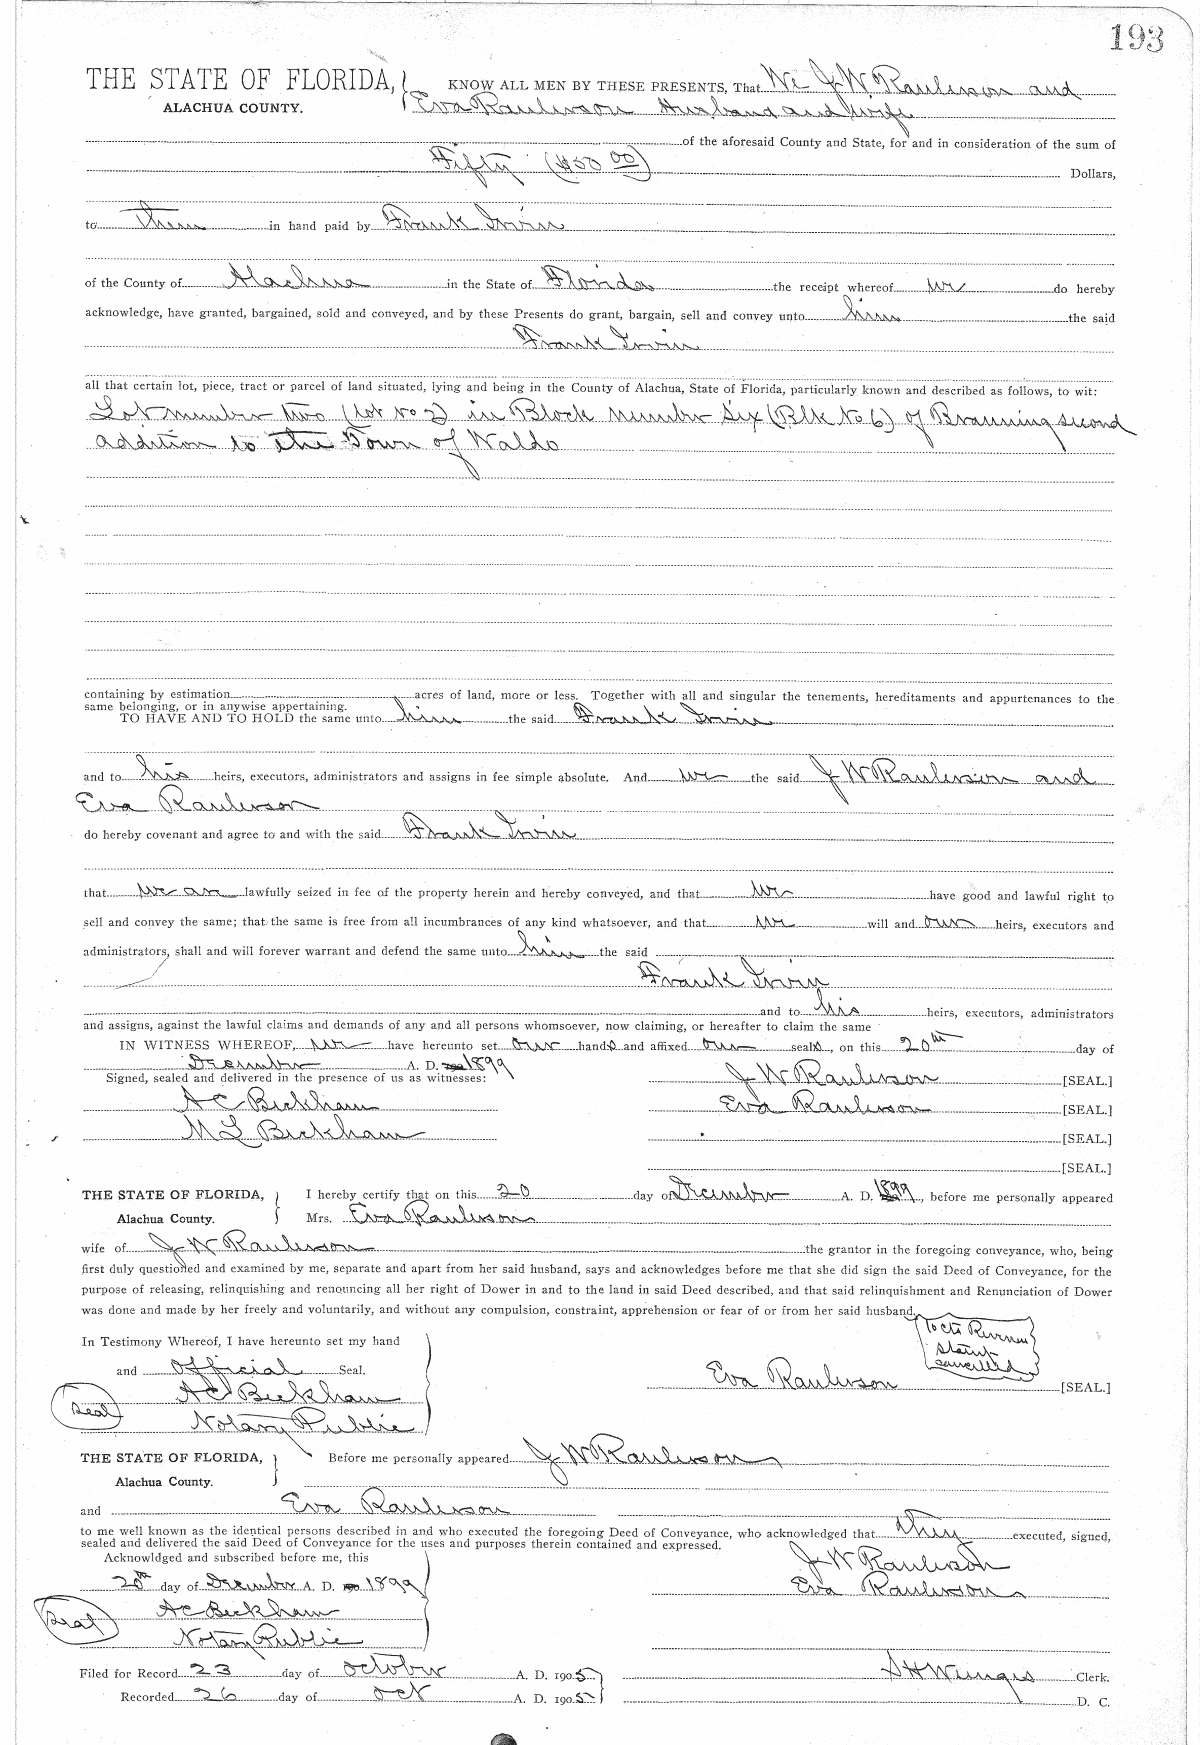 193
THE STATE OF FLORIDA, KNOW ALL MEN BY THESE PRESENTS, That We J W Raulerson and
ALACHUA COUNTY. Eva Raulerson Husband and wife
of the aforesaid County and State, for and in consideration of the sum of
Fifty ($50 00) Dollars,
to them in hand paid by Frank Irvin
of the County of Alachua in the State of Florida the receipt whereof we do hereby
acknowledge, have granted, bargained, sold and conveyed, and by these Presents do grant, bargain, sell and convey unto him the said
Frank Irvin
all that certain lot, piece, tract or parcel of land situated, lying and being in the County of Alachua, State of Florida, particularly known and described as follows, to wit:
Lot number two (Lot No 2) in Block number Six (Blk No 6) of Branning second
addition to the Town of Waldo
containing by estimation acres of land, more or less. Together with all and singular the tenements, hereditaments and appurtenances to the
same belonging, or in anywise appertaining.
TO HAVE AND TO HOLD the same unto him the said Frank Irvin
and to his heirs, executors, administrators and assigns in fee simple absolute. And we the said J W Raulerson and
Eva Raulerson
do hereby covenant and agree to and with the said Frank Irvin
that we are lawfully seized in fee of the property herein and hereby conveyed, and that we have good and lawful right to
sell and convey the same; that the same is free from all incumbrances of any kind whatsoever, and that we will and our heirs, executors and
administrators, shall and will forever warrant and defend the same unto him the said
Frank Irvin
and to his heirs, executors, administrators
and assigns, against the lawful claims and demands of any and all persons whomsoever, now claiming, or hereafter to claim the same
IN WITNESS WHEREOF, we have hereunto set our hands and affixed our seals, on this 20th day of
December A. D. 1899
Signed, sealed and delivered in the presence of us as witnesses: J W Raulerson [SEAL.]
A C Beckham Eva Raulerson [SEAL.]
M L Beckham [SEAL.]
[SEAL.]
THE STATE OF FLORIDA, I hereby certify that on this 20 day of December A. D. 1899, before me personally appeared
Alachua County. Mrs. Eva Raulerson
wife of J W Raulerson the grantor in the foregoing conveyance, who, being
first duly questioned and examined by me, separate and apart from her said husband, says and acknowledges before me that she did sign the said Deed of Conveyance, for the
purpose of releasing, relinquishing and renouncing all her right of Dower in and to the land in said Deed described, and that said relinquishment and Renunciation of Dower
was done and made by her freely and voluntarily, and without any compulsion, constraint, apprehension or fear of or from her said husband.
cts Revenue
Stamp
cancelled
In Testimony Whereof, I have hereunto set my hand
and Official Seal. Eva Raulerson [SEAL.]
Seal A C Beckham
Notary Public
THE STATE OF FLORIDA, Before me personally appeared J W Raulerson
Alachua County.
and Eva Raulerson
to me well known as the identical persons described in and who executed the foregoing Deed of Conveyance, who acknowledged that they executed, signed,
sealed and delivered the said Deed of Conveyance for the uses and purposes therein contained and expressed.
Acknowldged and subscribed before me, this J W Raulerson
20th day of December A. D. 1899 Eva Raulerson
Seal A C Beckham
Notary Public
Filed for Record 23 day of October A. D. 1905 S H Wienges Clerk.
Recorded 26 day of Oct A. D. 1905 D. C.